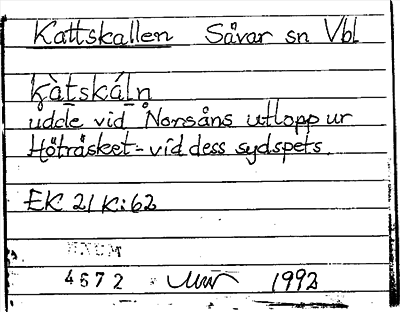 Kattskallen Sävar sn Vbl
kàtskáln
udde vid Norsåns utlopp ur
Höträsket - vid dess sydspets.
EK 21 K:62
4672 1992